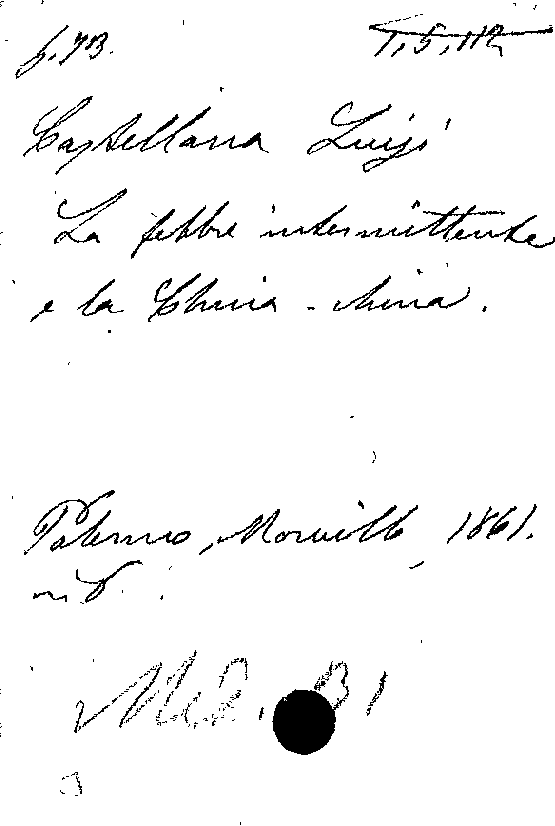 6.73. 1.5.112
Castellana Luigi
La febbre intermittente
e la China-china.
Palermo, Morvillo, 1861.
in 8°.
Mis. B 1